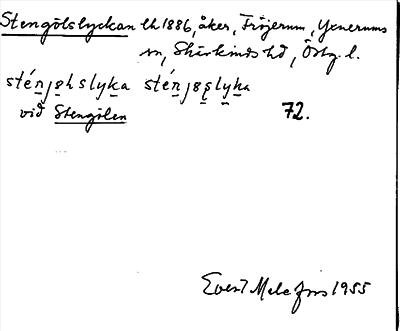 Stengölslyckan lh 1886, åker, Fröjerum, Yxnerums
sn, Skärkinds hd, Östg. l.
sténjøhslyka sténjøslyka
vid Stengölen 72.
1955